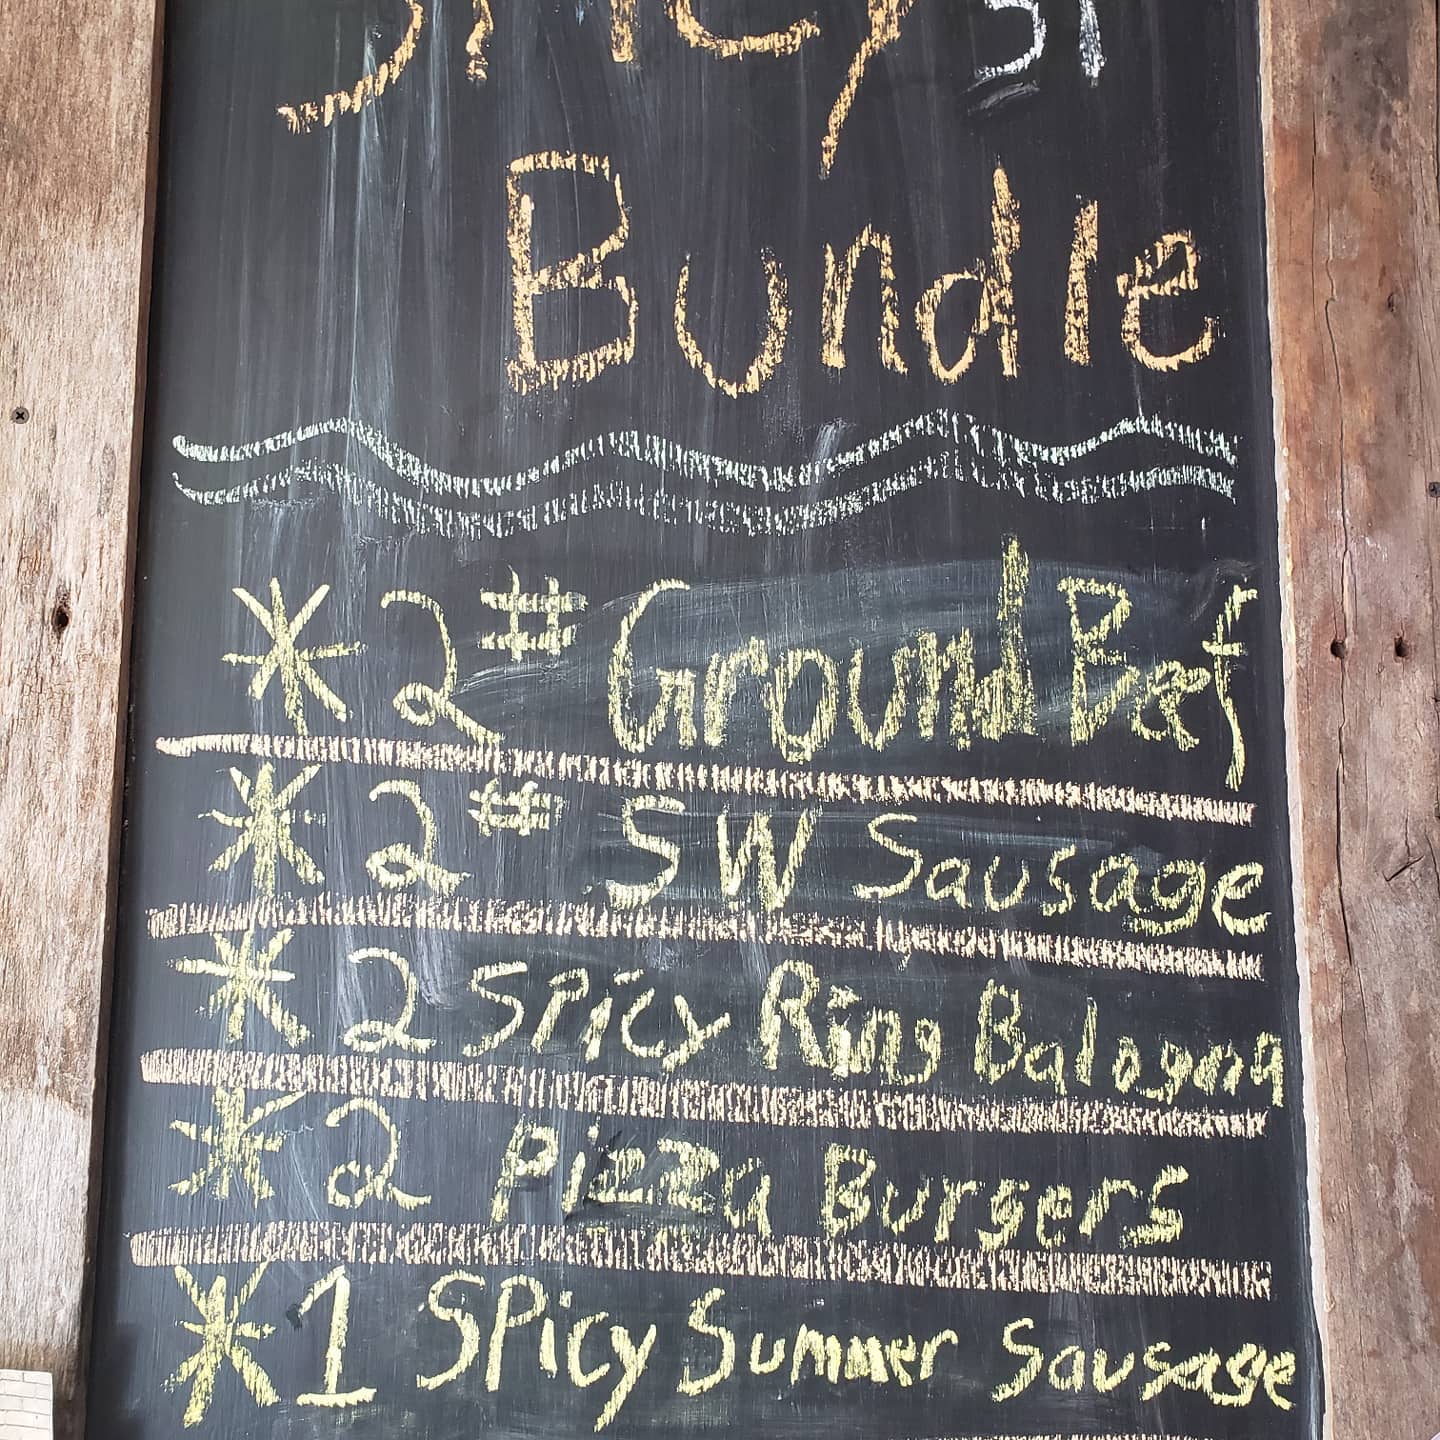 Spicy
Bundle
* 2# Ground Beef
* 2# SW Sausage
* 2 Spicy Ring Balogna
* 2 Pizza Burgers
* 1 Spicy Summer Sausage